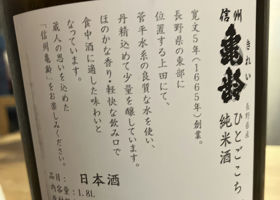 信州
亀齢
きれい
長野県産
ひとごこち
純米酒
寛文5年(1665年)創業。
長野県の東部に
位置する上田にて、
菅平水系の良質な水を使い、
丹精込めて少量を醸しています。
ほのかな香り・軽快な飲み口で
食中酒に適した味わいと
なっています。
蔵人の思いを込めた
「信州亀齢」をお楽しみください。
日本酒
容量:1.8L